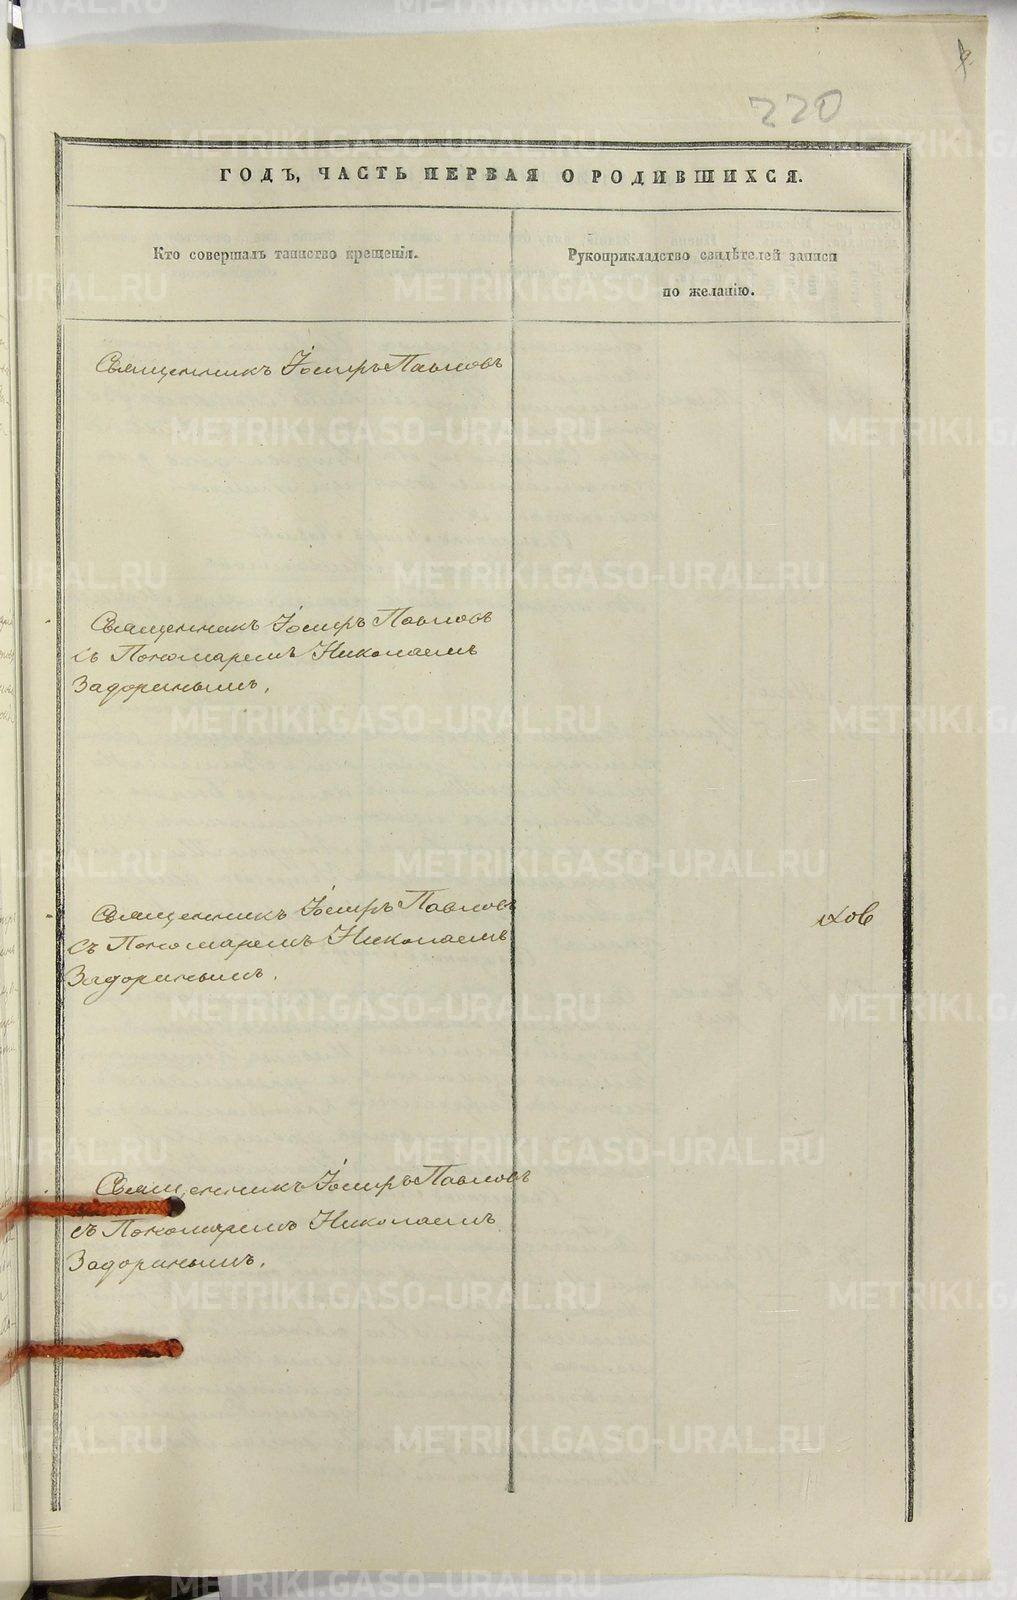 220
ГОДЪ, ЧАСТЬ ПЕРВАЯ О РОДИВШИХСЯ.
Кто совершалъ таинство крещенія.
Рукоприкладство свидѣтелей записи
по желанію.
Священникъ Іосифъ Павловъ
Священникъ Іосифъ Павловъ
съ Пономаремъ Николаемъ
Задоринымъ.
Священникъ Іосифъ Павловъ
съ Пономаремъ Николаемъ
Задоринымъ.
ховъ
Священникъ Іосифъ Павловъ
съ Пономаремъ Николаемъ
Задоринымъ.
METRIKI.GASO-URAL.RU